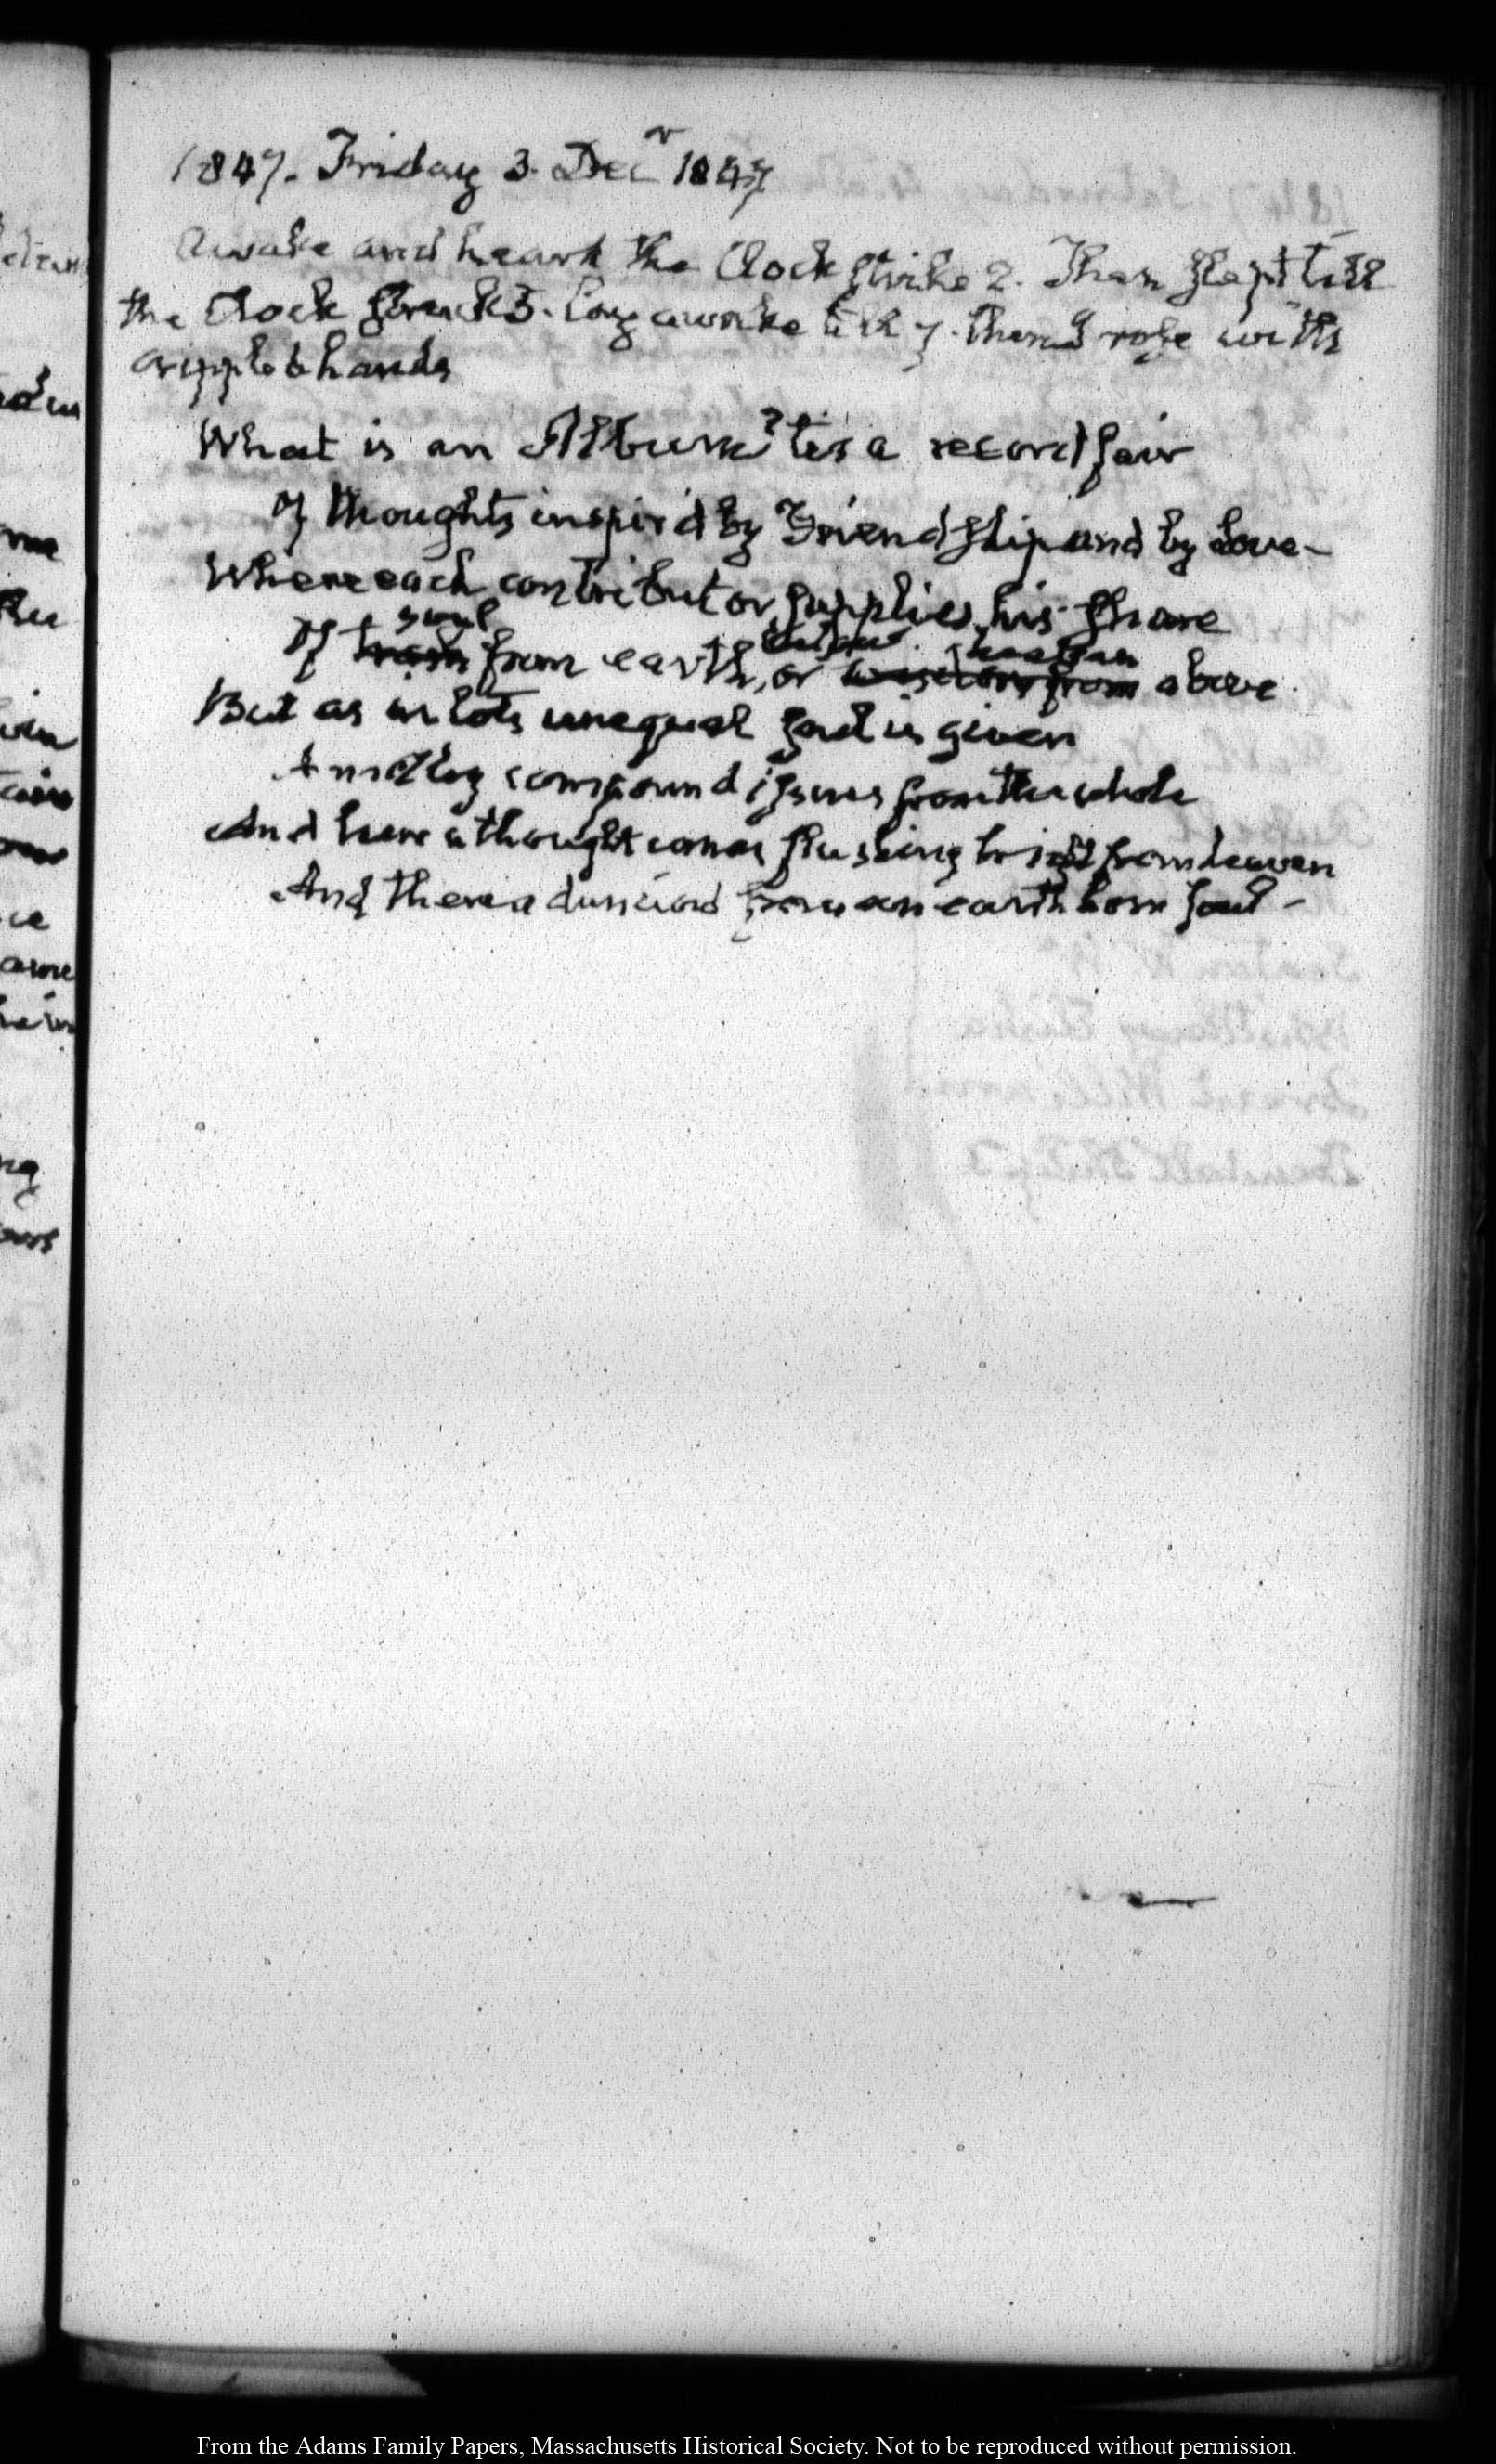 1847. Friday 3. Decr 1847
Awake and heark the Clock strike 2. Then slept till
the Clock struck 5. Lay awake till 7. then I rose with
crippled hands
What is an Album? tis a record fair
Of thoughts inspir'd by Friendship and by Love—
Where each contributor supplies his share
soul
Of from earth, or above.
But as in lots unequal soul is given
A motley compound issues from the whole
And here a thought comes flushing bright from heaven
And there a dunciad from an earth born soul—
From the Adams Family Papers, Massachusetts Historical Society. Not to be reproduced without permission.